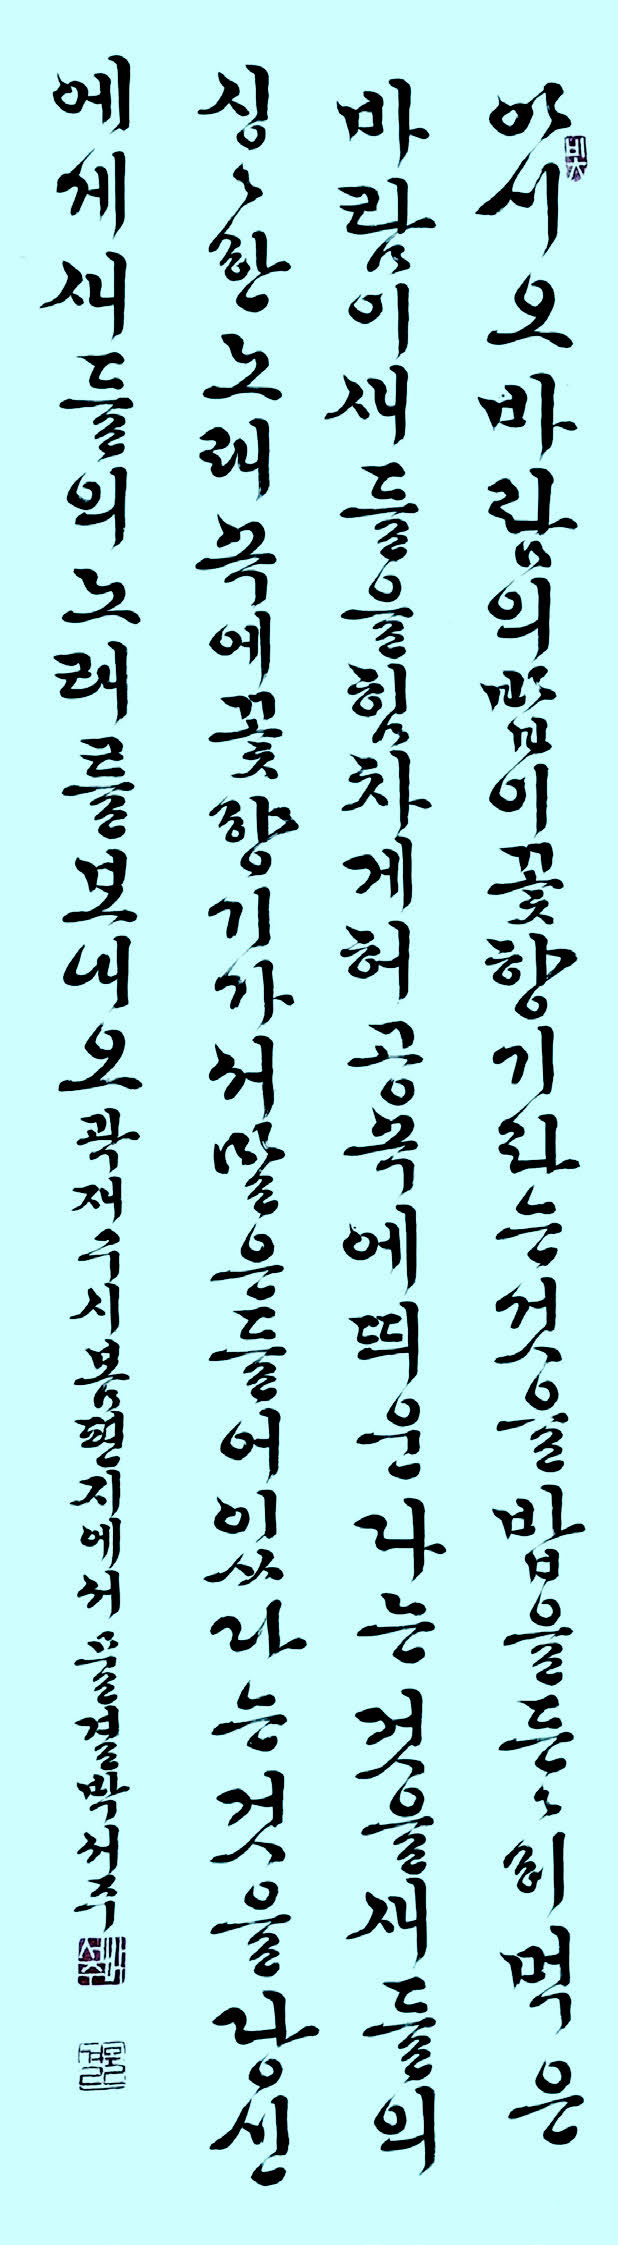 아시오바람의밥이꽃향기라는것을밥을든々히먹은
바람이새들을힘차게허공속에띄운다는것을새들의
싱々한노래속에꽃향기가서말은들어있다는것을당신
에게새들의노래를보내오 곽재구시봄편지에서 물결박서주
물결